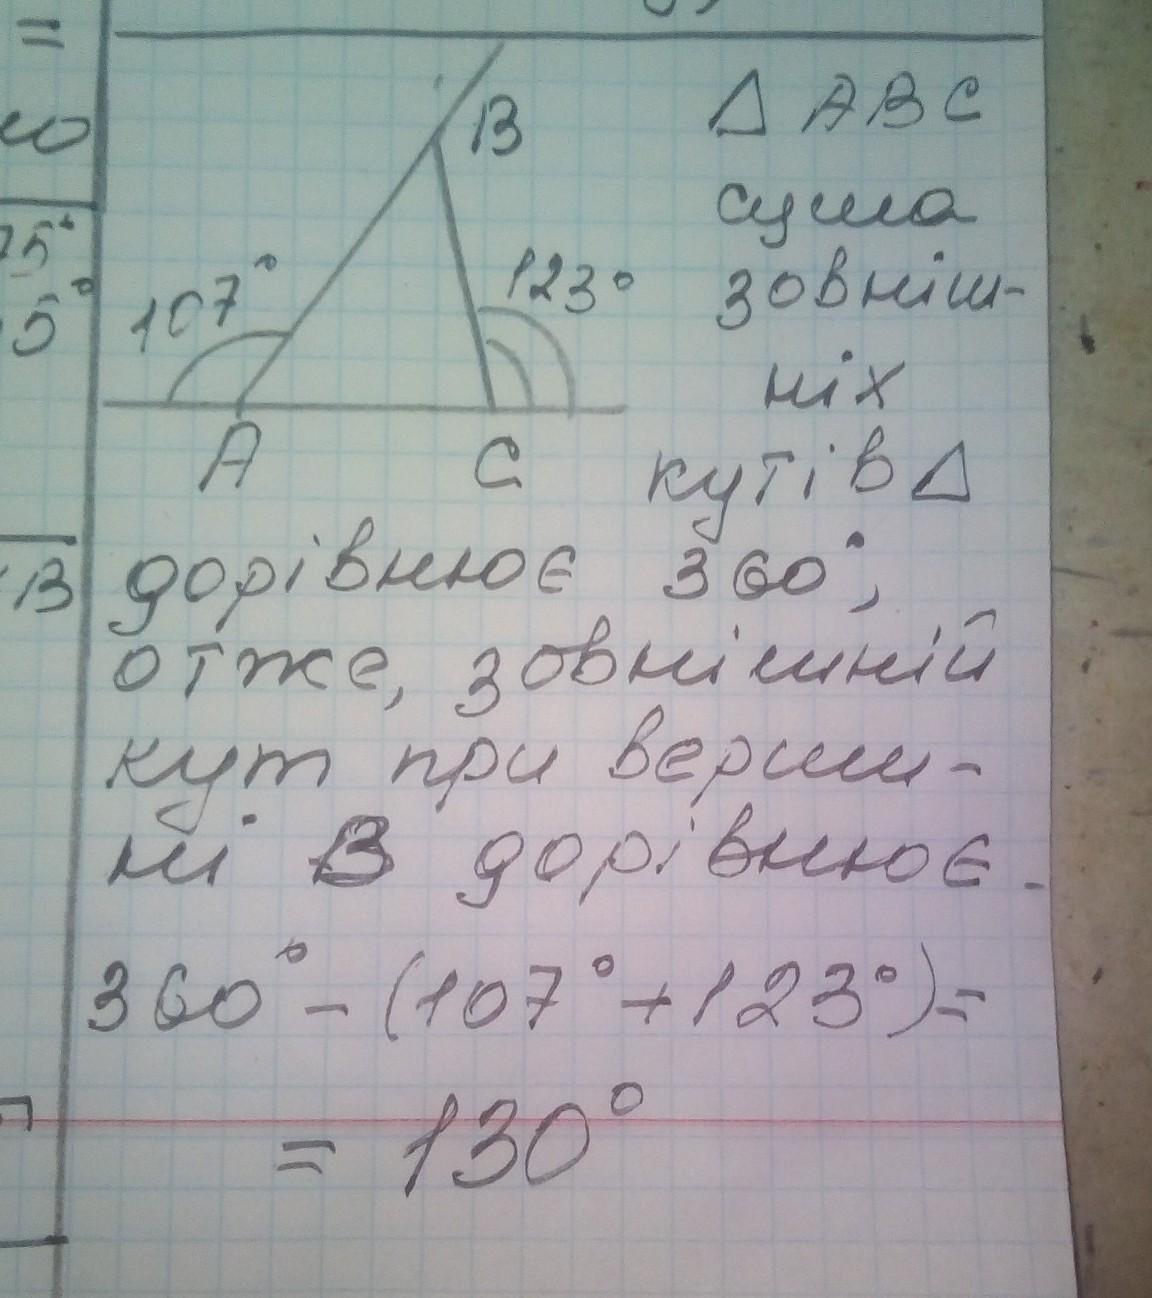 =
ю
75°
5°
В
В
107°
123°
А
С
△ АВС
сума
зовніш-
ніх
кутів △
дорівнює 360°,
отже, зовнішній
кут при верши-
ні В дорівнює
360° - (107° + 123°) =
= 130°